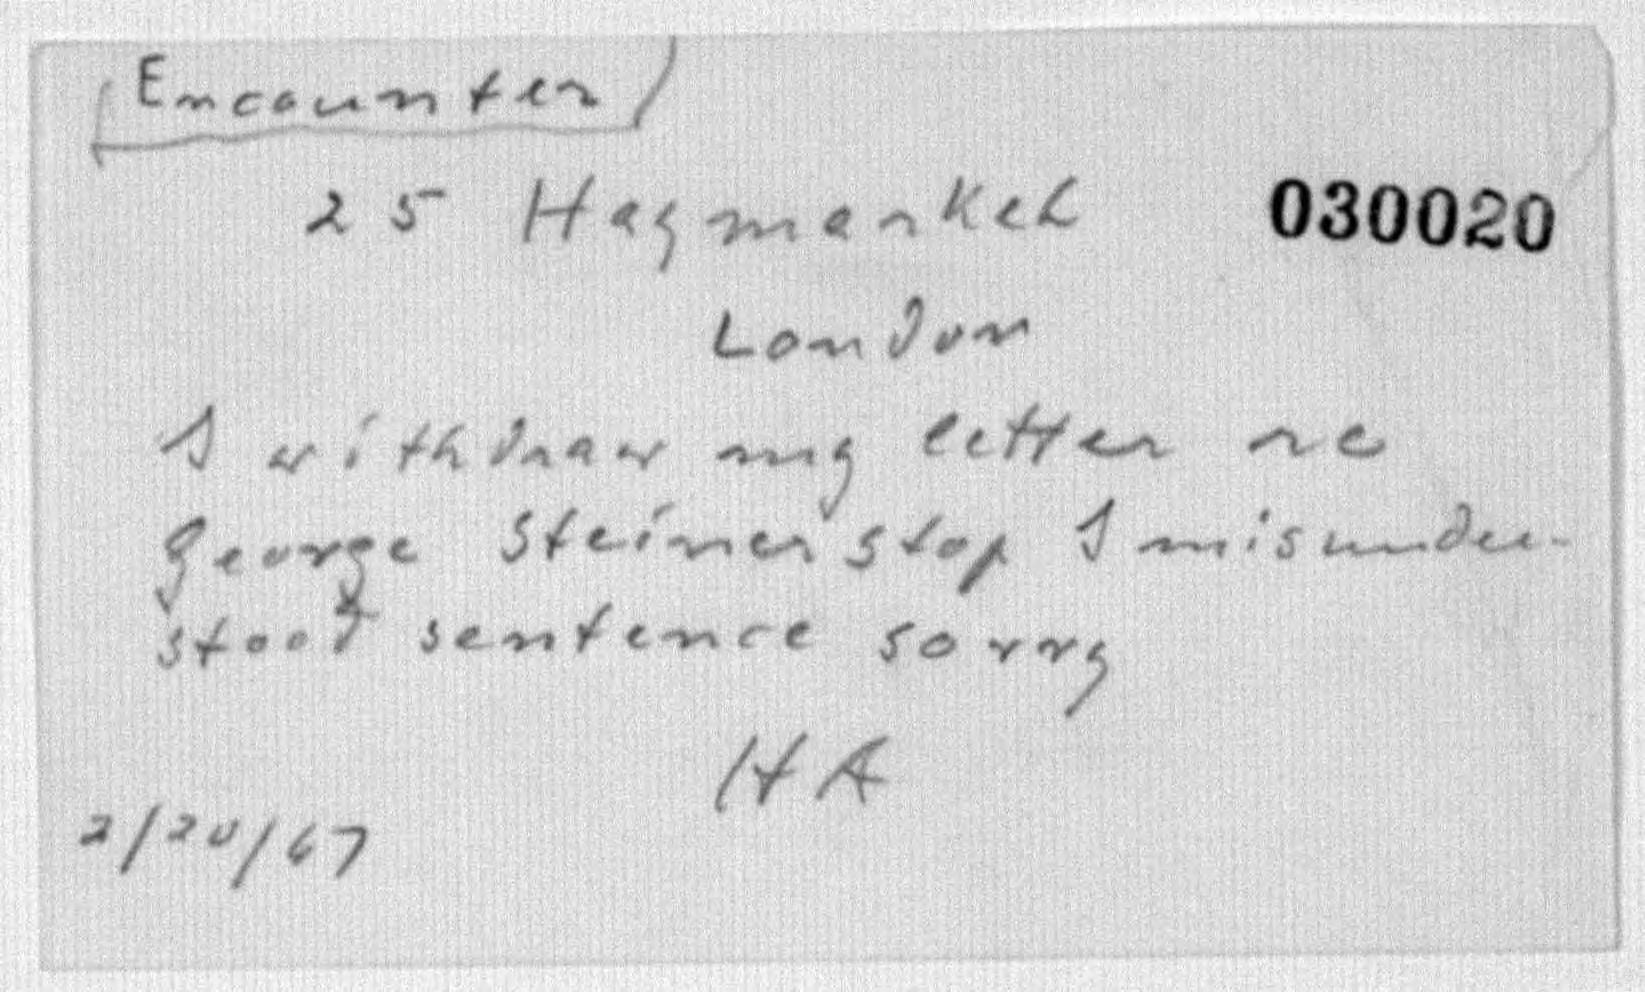 Encounter
25 Haymarket 030020
London
I withdraw my letter re
George Steiner stop I misunder-
stood sentence sorry
HA
2/20/67